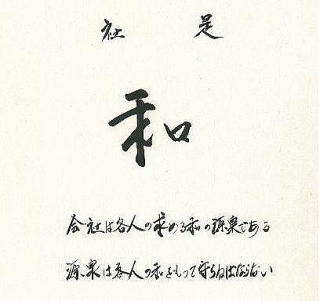 社是
和
会社は各人の求める和の源泉である
源泉は各人の和をもって守らねばならない